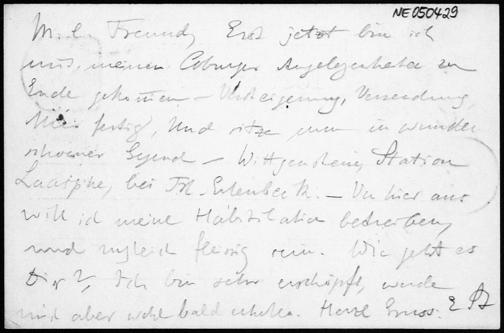 NE050429
M. l. Freund, Erst jetzt bin ich
mit meinen Coburger Angelegenheiten zu
Ende gekommen – Versteigerung, Versendung,
fertig, Und sitze nun in wunder
schoener Gegend – Wittgenstein, Station
Laasphe, bei Frl. Erlenbeck. – Von hier aus
will ich meine Habilitation betreiben,
und zugleich fleissig sein. Wie geht es
Dir?, Ich bin sehr erschöpft, werde
mich aber wohl bald erholen. Herzl Gruss. E